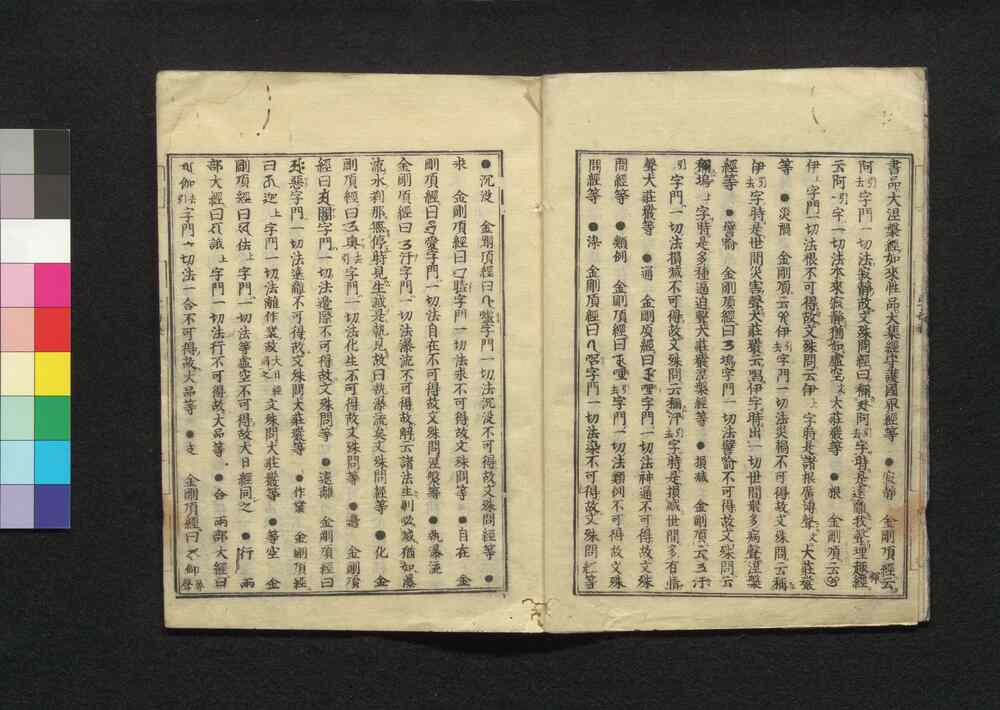 書品大涅槃經如來性品大集經守護國界經等 ●寂静 金剛頂經云
阿引去字門一切法寂静故文殊問經曰稱阿引去字時是遠離我聲理趣經
云阿引字一切法本來寂静猶如虚空又大莊嚴等 ●根 金剛頂云
伊上字門一切法根不可得故文殊問云伊上字時是諸根廣博聲又大莊嚴
等 ●災禍 金剛頂云伊引去字門一切法災禍不可得故文殊問云稱
伊引去字時是世間災害聲大莊嚴云唱伊字時出一切世間最多病聲涅槃
經等 ●譬喻 金剛頂經曰塢字門一切法譬喻不可得故文殊問云
稱塢上字時是多種逼迫聲大莊嚴涅槃經等 ●損減 金剛頂云汙
引字門一切法損減不可得故文殊問云稱汙引去字時是損減世間多有情
聲大莊嚴等 ●通 金剛頂經曰字門一切法神通不可得故文殊
問經等 ●類例 金剛頂經曰字門一切法類例不可得故文殊
問經等 ●染 金剛頂經曰字門一切法染不可得故文殊問經等
●沉没 金剛頂經曰字門一切法沉没不可得故文殊問經等 ●
求 金剛頂經曰字門一切法求不可得故文殊問等 ●自在 金
剛頂經曰愛字門一切法自在不可得故文殊問涅槃等 ●執瀑流
金剛頂經曰汙字門一切法瀑流不可得故解云諸法生則必滅猶如瀑
流水刹那無停時見生滅是執見故曰執瀑流矣文殊問經等 ●化 金
剛頂經曰奥引去字門一切法化生不可得故文殊問等 ●邊 金剛頂
經曰闇字門一切法邊際不可得故文殊問等 ●遠離 金剛頂經曰
惡字門一切法遠離不可得故文殊問大莊嚴等 ●作業 金剛頂經
曰迦上字門一切法離作業故大日經同之文殊問大莊嚴等 ●等空 金
剛頂經曰佉上字門一切法等虚空不可得故大日經同之 ●行 兩
部大經曰誐上字門一切法行不可得故大品等 ●合 兩部大經曰
伽去引字門一切法一合不可得故大品等 ●支 金剛頂經曰仰鼻聲